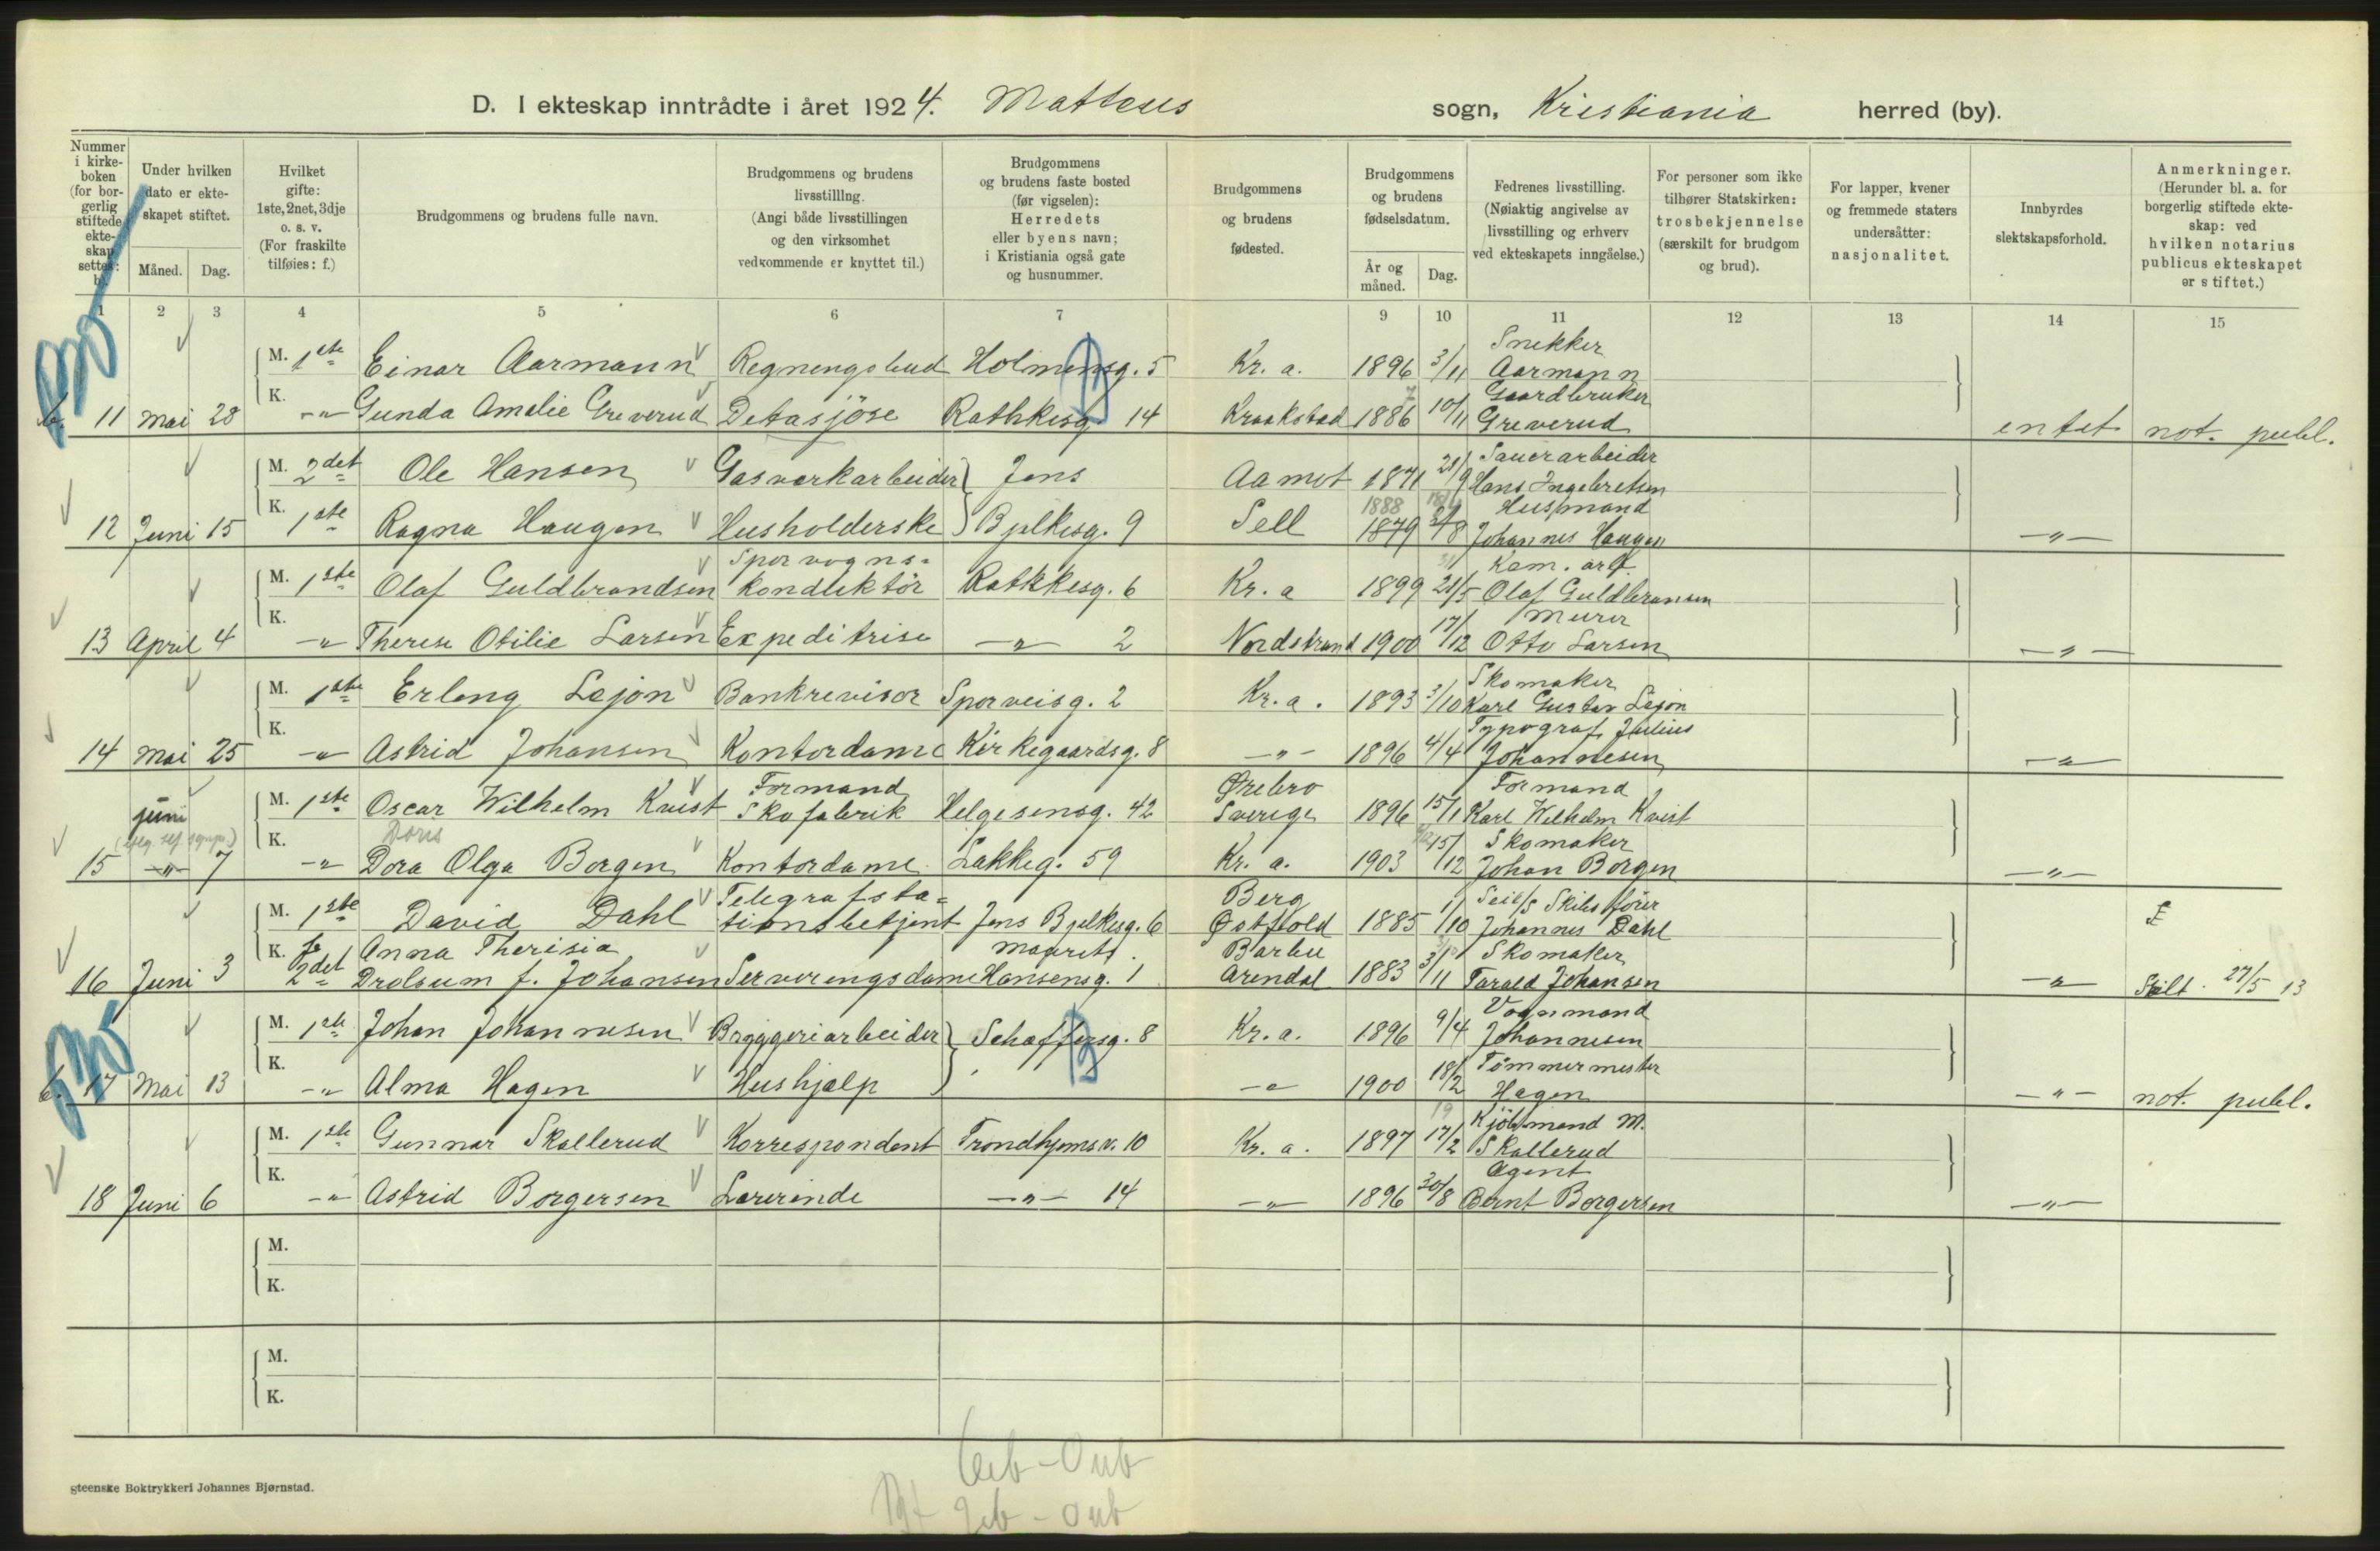 D. I ekteskap inntrådte i året 1924. Matteus sogn, Kristiania herred (by).
Nummer i kirkeboken (for borgerlig stiftede ekteskap settes: b).
Under hvilken dato er ekteskapet stiftet.
Måned. Dag.
Hvilket gifte: 1ste, 2net, 3dje o. s. v. (For fraskilte tilføies: f.)
Brudgommens og brudens fulle navn.
Brudgommens og brudens livsstilllng. (Angi både livsstillingen og den virksomhet vedkommende er knyttet til.)
Brudgommens og brudens faste bosted (før vigselen): Herredets eller byens navn; i Kristiania også gate og husnummer.
Brudgommens og brudens fødested.
Brudgommens og brudens fødselsdatum.
År og måned. Dag.
Fedrenes livsstilling. (Nøiaktig angivelse av livsstilling og erhverv ved ekteskapets inngåelse.)
For personer som ikke tilhører Statskirken: trosbekjennelse (særskilt for brudgom og brud).
For lapper, kvener og fremmede staters undersåtter: nasjonalitet.
Innbyrdes slektskapsforhold.
Anmerkninger. (Herunder bl. a. for borgerlig stiftede ekteskap: ved hvilken notarius publicus ekteskapet er stiftet.)
1 2 3 4 5 6 7 9 10 11 12 13 14 15
Snekker
M. 1ste Einar Aarmann Regningsbud Holmensg. 5 Kr. a. 1896 3/11 Aarmann
Gaardbruker
b. 11 Mai 28 K. -"- Gunda Amalie Greverud Detasjöse Rathkesg. 14 Kraakstad 1886 10/11 Greverud intet not. publ.
Sauerarbeider
M. 2det Ole Hansen Gasverkarbeider Jens Aamot 1871 28/9 Hans Ingebretsen
1888 Husmand
12 Juni 15 K. 1ste Ragna Haugen Husholderske Bjelkesg. 9 Sell 1879 Johannes Haugen -"-
Sporvogns-
M. 1ste Olaf Guldbrandsen konduktör Rathkesg. 6 Kr. a 1899 21/5 Olaf Guldbransen
Murer
13 April 4 K. -"- Therese Otilie Larsen Expeditrise -"- 2 Nordstrand 1900 17/12 Otto Larsen -"-
Skomaker
M. 1ste Erling Lejon Bankrevisor Sporveisg. 2 Kr. a. 1893 3/10 Karl Gustav Lejon
Typograf Julius
14 Mai 25 K. -"- Astrid Johansen Kontordame Kirkegaardsg. 8 -"- 1896 4/4 Johannesen -"-
Formand Ørebro Formand
juni M. 1ste Oscar Wilhelm Kvist Skofabrik Helgesensg. 42 Sverige 1896 15/1 Karl Wilhelm Kvist
Doris Skomaker
15 -"- 7 K. -"- Dora Olga Borgen Kontordame Lakkeg. 59 Kr. a. 1903 15/12 Johan Borgen -"-
Telegrafsta- Berg Skibsfører
M. 1ste David Dahl tionsbetjent Jens Bjelkesg. 6 Østfold 1885 1/10 Johannes Dahl
K. Anna Therisia Maurits Barbu Skomaker
16 Juni 3 2det Drolsum f. Johansen Serveringsdame Hansensg. 1 Arendal 1883 3/11 Tarald Johansen -"- Skilt 27/5 13
Vognmand
M. 1ste Johan Johannesen Bryggeriarbeider Schæffersg. 8 Kr. a. 1896 9/4 Johannesen
Tömmermester
b. 17 Mai 13 K. -"- Alma Hagen Hushjælp -"- 1900 18/2 Hagen -"- not. publ.
Kjöbmand M.
M. 1ste Gunnar Skallerud Korrespondent Trondhjemsv. 10 Kr. a. 1897 17/2 Skallerud
Agent
18 Juni 6 K. -"- Astrid Borgersen Lærerinde -"- 14 -"- 1896 30/8 Bernt Borgersen -"-
M.
K.
M.
K.
steenske Boktrykkeri Johannes Bjørnstad.